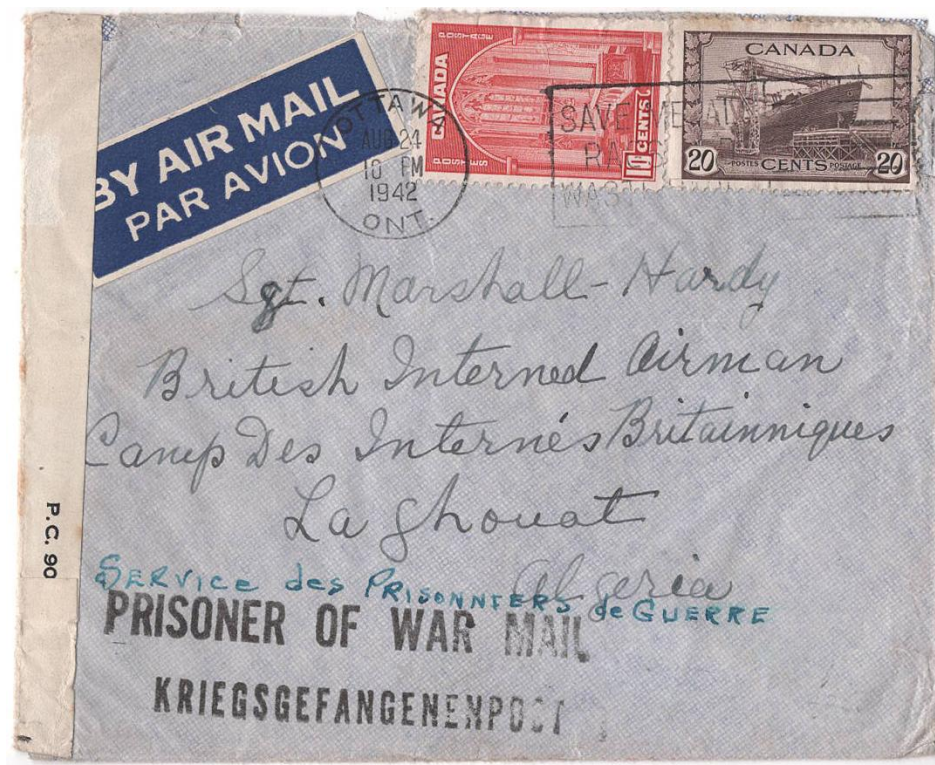 BY AIR MAIL
PAR AVION
OTTAWA
AUG 24
16 PM
1942
ONT.
POSTAGE
POSTAGE
CANADA
POSTES
POSTES
10 CENTS
CANADA
20 POSTES CENTS POSTAGE 20
SAVE
WAST
Sgt. Marshall-Hardy
British Interned Airman
Camp Des Internés Britainniques
Laghouat
Algeria
SERVICE des PRISONNIERS de GUERRE
PRISONER OF WAR MAIL
KRIEGSGEFANGENENPOST
P.C. 90